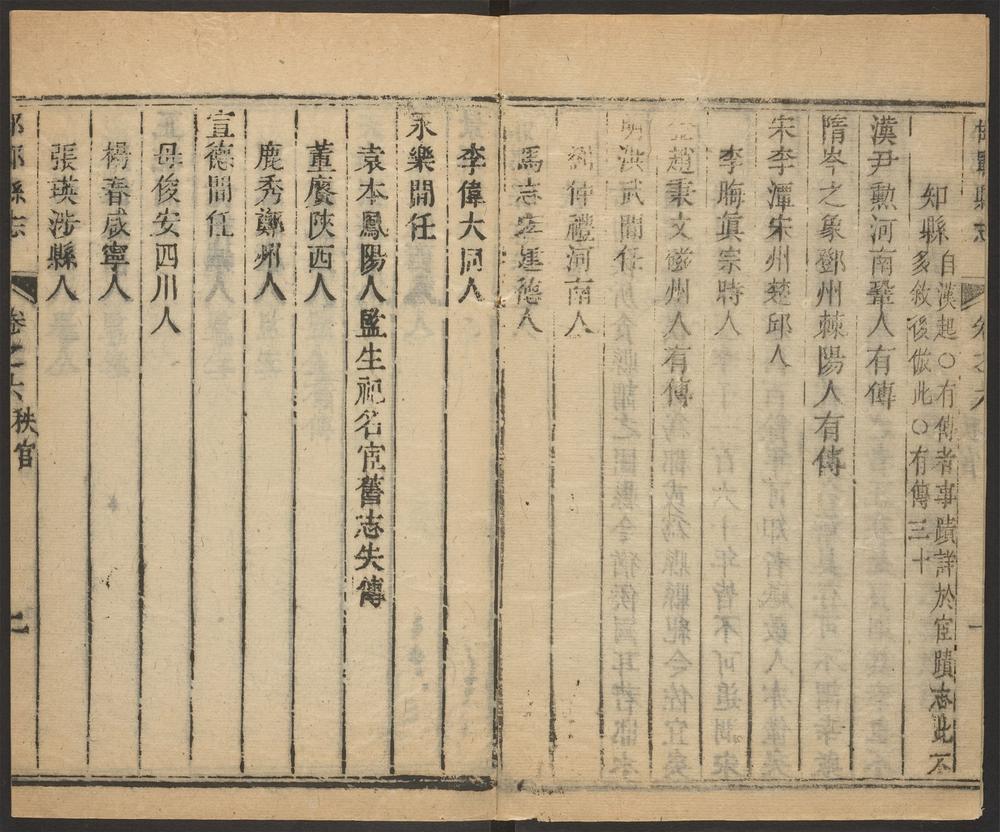 邯鄲縣志 卷之六 一
知縣自漢起○有傳者事蹟詳於宦蹟志此不
多敘後倣此○有傳三十
漢尹勲河南鞏人有傳
隋岑之象鄧州棘陽人有傳
宋李潭宋州楚邱人
李晦眞宗時人
趙秉文磁州人有傳
明洪武間任
仲禮河南人
馬志宏建德人
李偉大同人
永樂間任
袁本鳳陽人監生祀名宦舊志失傳
董賡陝西人
鹿秀鄭州人
宣德間任
母俊安四川人
楊春咸寧人
張瑛涉縣人
邯鄲縣志 卷之六 秩官